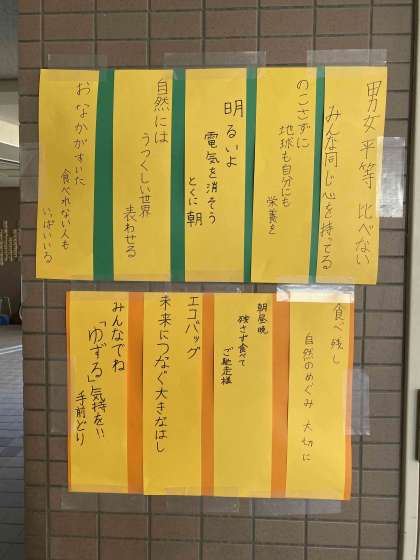 男女平等 比べない
みんな同じ心を持ってる
のこさずに
地球も自分にも
栄養を
明るいよ
電気を消そう
とくに朝
自然には
うつくしい世界
表わせる
おなかがすいた
食べれない人も
いっぱいいる
食べ残し
自然のめぐみ 大切に
朝昼晩
残さず食べて
ご馳走様
エコバッグ
未来につなぐ大きなはし
みんなでね
「ゆずる」気持を!!
手前どり